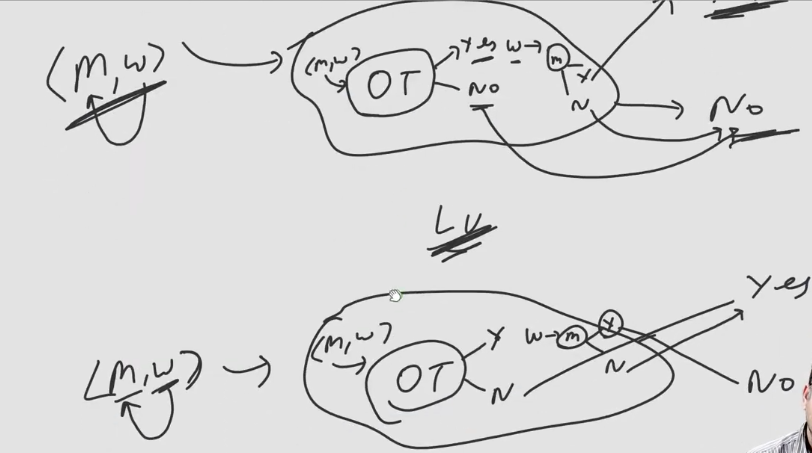 ⟨M, w⟩
(M, w)
OT
Yes w → m Y
No
N
No
LU
⟨M, w⟩
(M, w)
OT
Y w → m Y
N
N
Yes
No